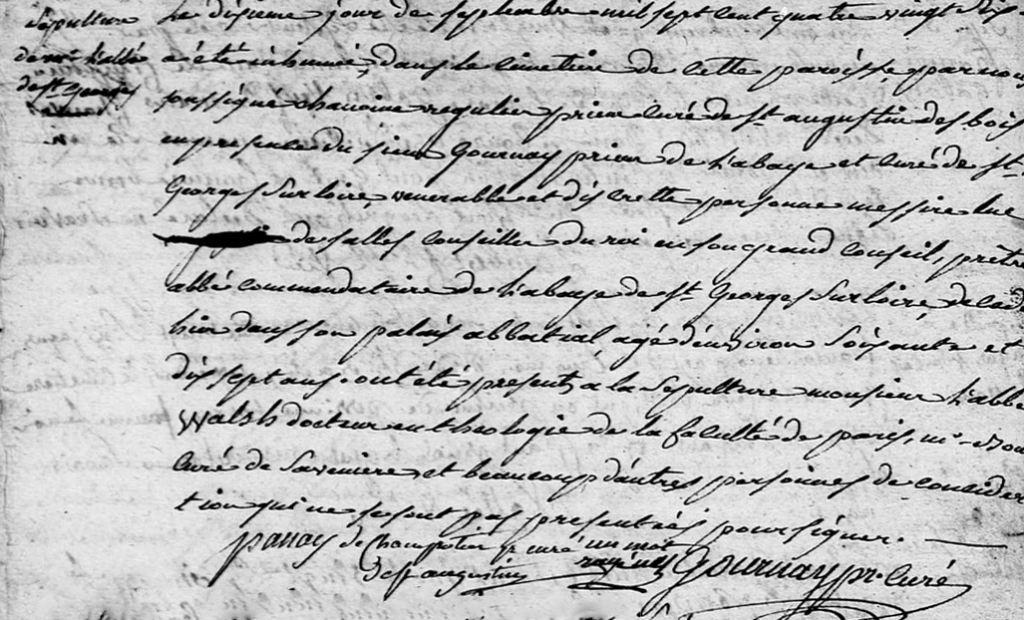 Sepulture
de mr l'abbé
de st Georges
Le disieme jour de septembre mil sept cent quatre vingt dix
a été inhumé, dans le cimetiere de cette paroisse par nous
soussigné chanoine regulier prieur curé de st augustin des bois
en presence du sieur Gournay prieur de l'abaye et curé de st
Georges Sur loire, venerable et discrette personne messire luc
de salles conseiller du roi en son grand conseil, prêtre
abbé commendataire de l'abaye de st Georges Sur loire, decedé
hier dans son palais abbatial agé d'environ soixante et
dix sept ans. ont été presents a la sepulture monsieur l'abbé
Walsh docteur en theologie de la faculté de paris, mr
curé de Savenieres et beaucoup d'autres personnes de consider
tion qui ne se sont pas presentées pour signer.
de pr curé un mot
de st augustin rayé nul Gournay pr. Curé